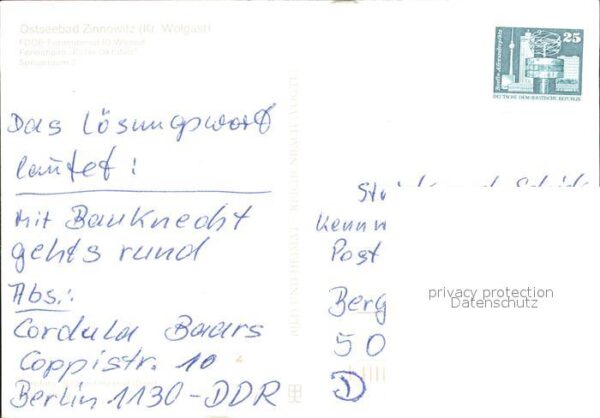 Ostseebad Zinnowitz (Kr. Wolgast)
FDGB-Feriendienst IG Wismut
Ferienheim „Roter Oktober“
Speiseraum 2
25
Berlin-Alexanderplatz
DEUTSCHE DEMOKRATISCHE REPUBLIK
Das Lösungswort
lautet:
Mit Bauknecht
gehts rund
Abs.:
Cordula Baars
Coppistr. 10
Berlin 1130-DDR
Kennw
Post
Berg
50
D
privacy protection
Datenschutz